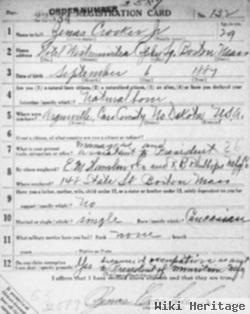 ORDER NUMBER
REGISTRATION CARD No. 132
1 Name in full Zenas Crocker Jr 29
2 Home address Hotel Westminster Copley Sq. Boston Mass
3 Date of birth September 6 1887
4 Are you (1) a natural-born citizen, (2) a naturalized citizen, (3) an alien, (4) or have you declared your intention (specify which)? Natural born
5 Where were you born? Cass County No. Dakota, U.S.A.
6 If not a citizen, of what country are you a citizen or subject?
7 What is your present trade, occupation, or office? Manager and assistant to President
8 By whom employed?
Where employed? 148 State St. Boston Mass
9 Have you a father, mother, wife, child under 12, or a sister or brother under 12, solely dependent on you for support (specify which)?
No
10 Married or single (which)? single Race (specify which)? Caucasian
11 What military service have you had? Rank none branch
years Nation or State
12 Do you claim exemption from draft (specify grounds)? Yes because of occupation as asst
to President of
I affirm that I have verified above answers and that they are true.
Wiki Heritage